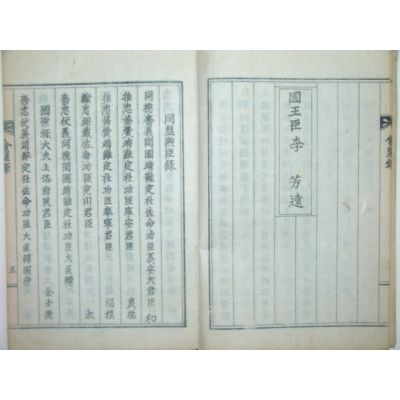 國王臣李 芳遠
同盟勳臣錄
同德贊義開國靖難定社佐命功臣義安大君臣 和
推忠協贊靖難定社功臣寧安君臣 良祐
推忠協贊靖難定社功臣奉寧君臣 福根
翊戴佐命功臣完川君臣 淑
奮忠仗義同德開國靖難定社功臣大匡輔
國崇祿大夫上洛府院君臣 金士衡
奮忠仗義靖難定社佐命功臣大匡輔國崇
會盟錄
五